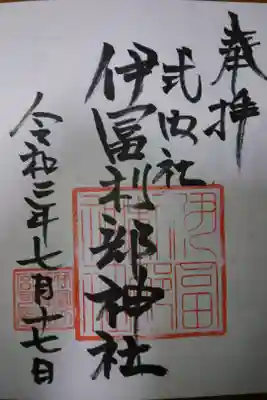 奉拝
式内社
伊冨利部神社
令和三年七月十七日